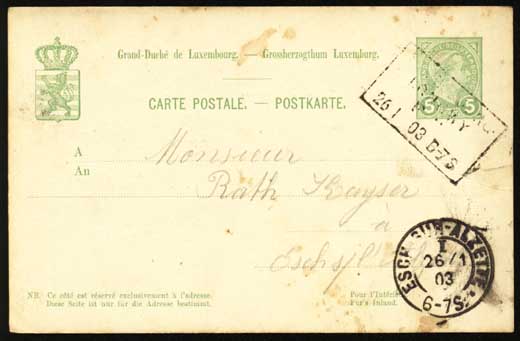 Grand-Duché de Luxembourg. — Grossherzogthum Luxemburg.
CARTE POSTALE. — POSTKARTE.
5 5
26 1 03 D-7S
A Monsieur
An
Rath Kayser
à
ESCH-SUR-ALZETTE
I
26/1
03
6-7S
NB. Ce côté est réservé exclusivement à l'adresse.
Diese Seite ist nur für die Adresse bestimmt.
Pour l'Intérieur
Für's Inland.